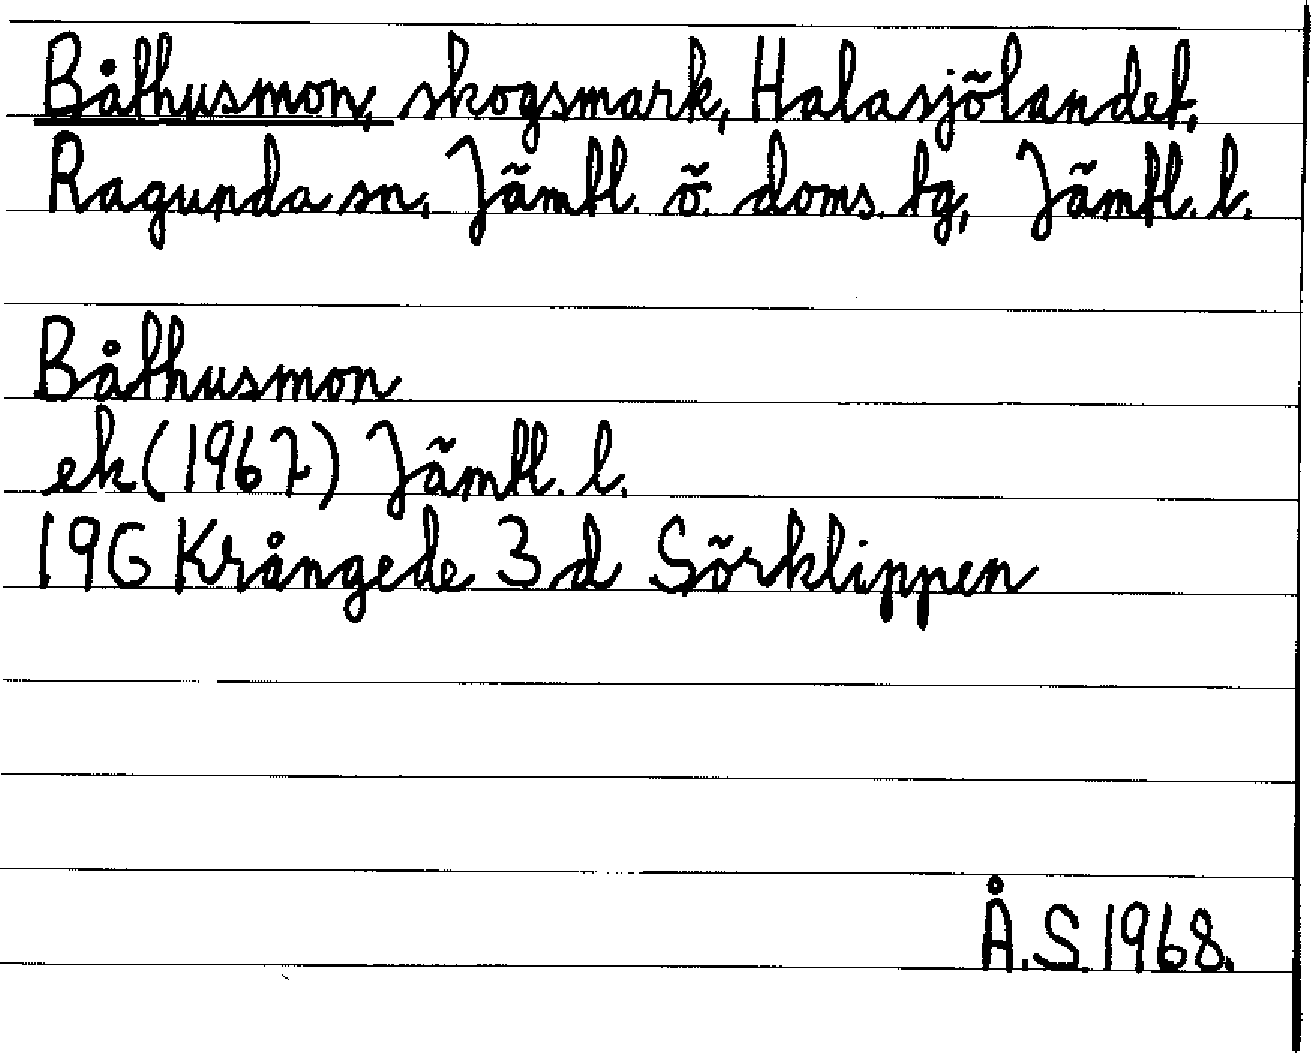 Båthusmon, skogsmark, Halasjölandet,
Ragunda sn, Jämtl. ö. doms. tg, Jämtl. l.
Båthusmon
ek (1967) Jämtl. l.
19G Krångede 3 d Sörklippen
Å.S. 1968.